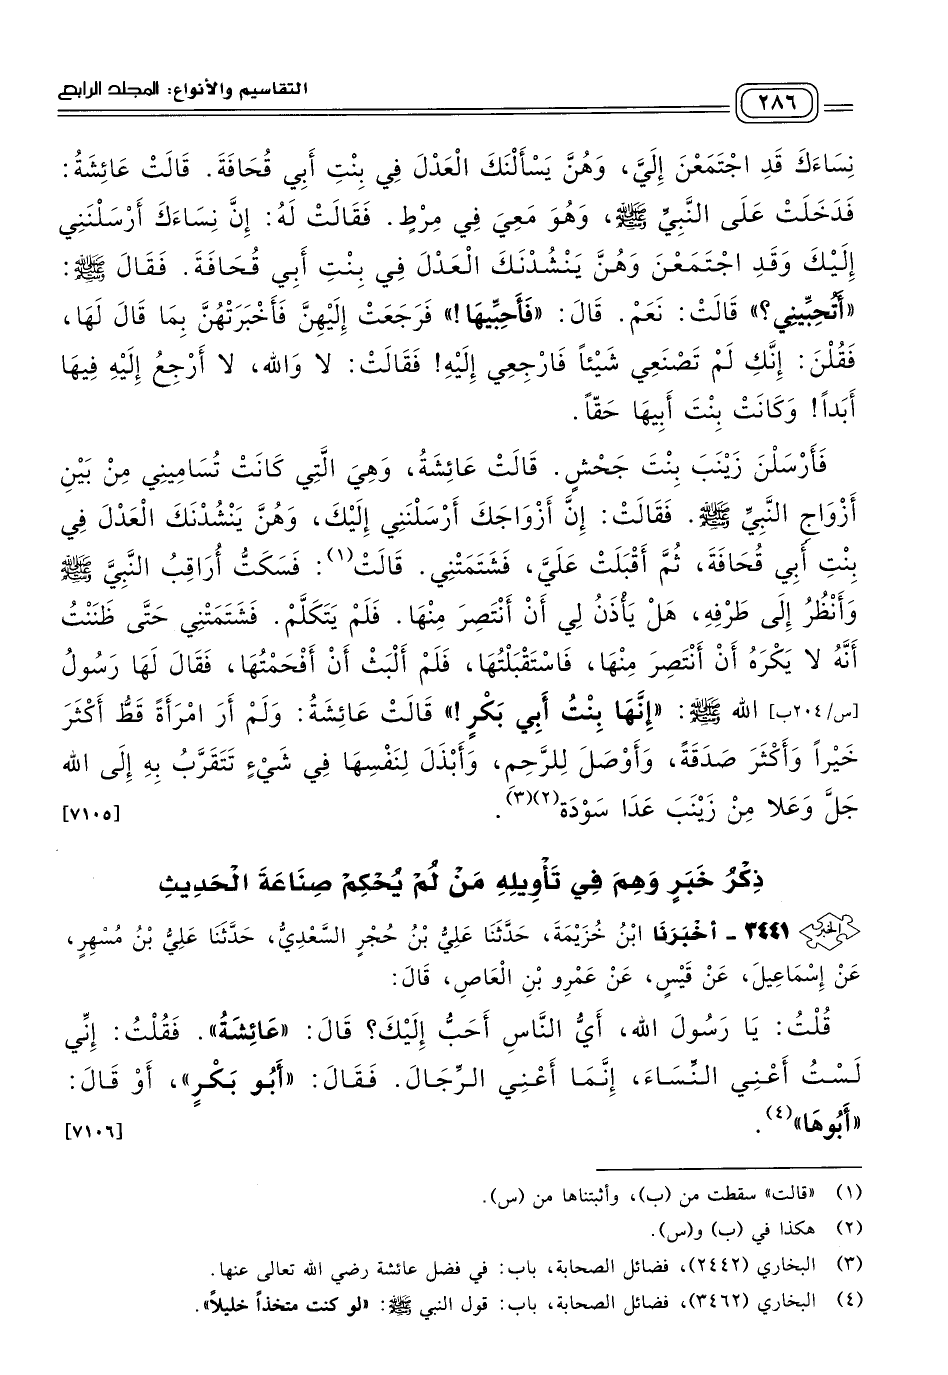 ٢٨٦ التقاسيم والأنواع: المجلد الرابع
نِسَاءَكَ قَدِ اجْتَمَعْنَ إِلَيَّ، وَهُنَّ يَسْأَلْنَكَ الْعَدْلَ فِي بِنْتِ أَبِي قُحَافَةَ. قَالَتْ عَائِشَةُ:
فَدَخَلَتْ عَلَى النَّبِيِّ ﷺ، وَهُوَ مَعِيَ فِي مِرْطٍ. فَقَالَتْ لَهُ: إِنَّ نِسَاءَكَ أَرْسَلْنَنِي
إِلَيْكَ وَقَدِ اجْتَمَعْنَ وَهُنَّ يَنْشُدْنَكَ الْعَدْلَ فِي بِنْتِ أَبِي قُحَافَةَ. فَقَالَ ﷺ:
«أَتُحِبِّينِي؟» قَالَتْ: نَعَمْ. قَالَ: «فَأَحِبِّيهَا!» فَرَجَعَتْ إِلَيْهِنَّ فَأَخْبَرَتْهُنَّ بِمَا قَالَ لَهَا،
فَقُلْنَ: إِنَّكِ لَمْ تَصْنَعِي شَيْئاً فَارْجِعِي إِلَيْهِ! فَقَالَتْ: لا وَالله، لا أَرْجِعُ إِلَيْهِ فِيهَا
أَبَداً! وَكَانَتْ بِنْتَ أَبِيهَا حَقّاً.
فَأَرْسَلْنَ زَيْنَبَ بِنْتَ جَحْشٍ. قَالَتْ عَائِشَةُ، وَهِيَ الَّتِي كَانَتْ تُسَامِينِي مِنْ بَيْنِ
أَزْوَاجِ النَّبِيِّ ﷺ. فَقَالَتْ: إِنَّ أَزْوَاجَكَ أَرْسَلْنَنِي إِلَيْكَ، وَهُنَّ يَنْشُدْنَكَ الْعَدْلَ فِي
بِنْتِ أَبِي قُحَافَةَ، ثُمَّ أَقْبَلَتْ عَلَيَّ، فَشَتَمَتْنِي. قَالَتْ(١): فَسَكَتُّ أُرَاقِبُ النَّبِيَّ ﷺ
وَأَنْظُرُ إِلَى طَرْفِهِ، هَلْ يَأْذَنُ لِي أَنْ أَنْتَصِرَ مِنْهَا. فَلَمْ يَتَكَلَّمْ. فَشَتَمَتْنِي حَتَّى ظَنَنْتُ
أَنَّهُ لا يَكْرَهُ أَنْ أَنْتَصِرَ مِنْهَا، فَاسْتَقْبَلْتُهَا، فَلَمْ أَلْبَثْ أَنْ أَفْحَمْتُهَا، فَقَالَ لَهَا رَسُولُ
[س/٢٠٤ب] الله ﷺ: «إِنَّهَا بِنْتُ أَبِي بَكْرٍ!» قَالَتْ عَائِشَةُ: وَلَمْ أَرَ امْرَأَةً قَطُّ أَكْثَرَ
خَيْراً وَأَكْثَرَ صَدَقَةً، وَأَوْصَلَ لِلرَّحِمِ، وَأَبْذَلَ لِنَفْسِهَا فِي شَيْءٍ تَتَقَرَّبُ بِهِ إِلَى الله
جَلَّ وَعَلا مِنْ زَيْنَبَ عَدَا سَوْدَةَ(٢)(٣). [٧١٠٥]
ذِكْرُ خَبَرٍ وَهِمَ فِي تَأْوِيلِهِ مَنْ لَمْ يُحْكِمْ صِنَاعَةَ الْحَدِيثِ
الخبر ٣٤٤١ - أَخْبَرَنَا ابْنُ خُزَيْمَةَ، حَدَّثَنَا عَلِيُّ بْنُ حُجْرٍ السَّعْدِيُّ، حَدَّثَنَا عَلِيُّ بْنُ مُسْهِرٍ،
عَنْ إِسْمَاعِيلَ، عَنْ قَيْسٍ، عَنْ عَمْرِو بْنِ الْعَاصِ، قَالَ:
قُلْتُ: يَا رَسُولَ الله، أَيُّ النَّاسِ أَحَبُّ إِلَيْكَ؟ قَالَ: «عَائِشَةُ». فَقُلْتُ: إِنِّي
لَسْتُ أَعْنِي النِّسَاءَ، إِنَّمَا أَعْنِي الرِّجَالَ. فَقَالَ: «أَبُو بَكْرٍ»، أَوْ قَالَ:
«أَبُوهَا»(٤). [٧١٠٦]
(١) «قالت» سقطت من (ب)، وأثبتناها من (س).
(٢) هكذا في (ب) و(س).
(٣) البخاري (٢٤٤٢)، فضائل الصحابة، باب: في فضل عائشة رضي الله تعالى عنها.
(٤) البخاري (٣٤٦٢)، فضائل الصحابة، باب: قول النبي ﷺ: «لو كنت متخذاً خليلاً».